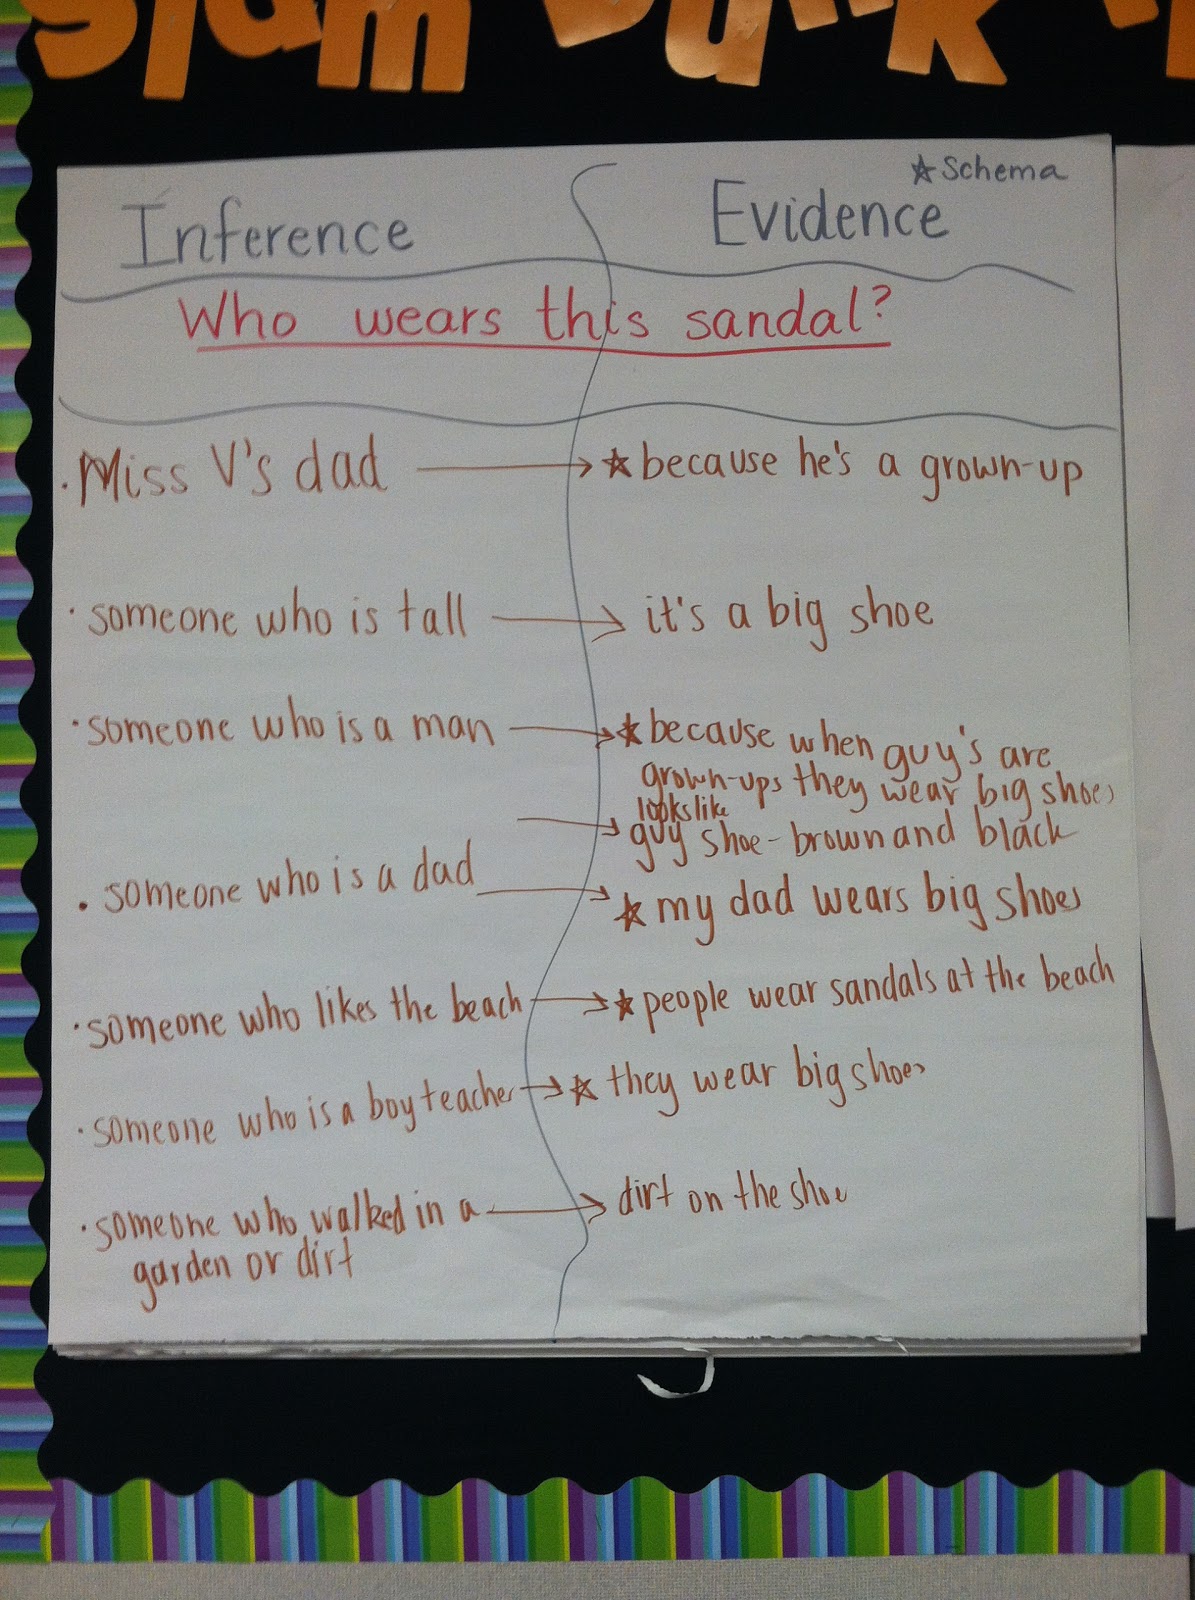 slam dunk
★ Schema
Inference Evidence
Who wears this sandal?
· Miss V's dad → ★ because he's a grown-up
· someone who is tall → it's a big shoe
· someone who is a man → ★ because when guy's are
grown-ups they wear big shoes
looks like
→ guy shoe - brown and black
· someone who is a dad → ★ my dad wears big shoes
· someone who likes the beach → ★ people wear sandals at the beach
· someone who is a boy teacher → ★ they wear big shoes
· someone who walked in a → dirt on the shoe
garden or dirt